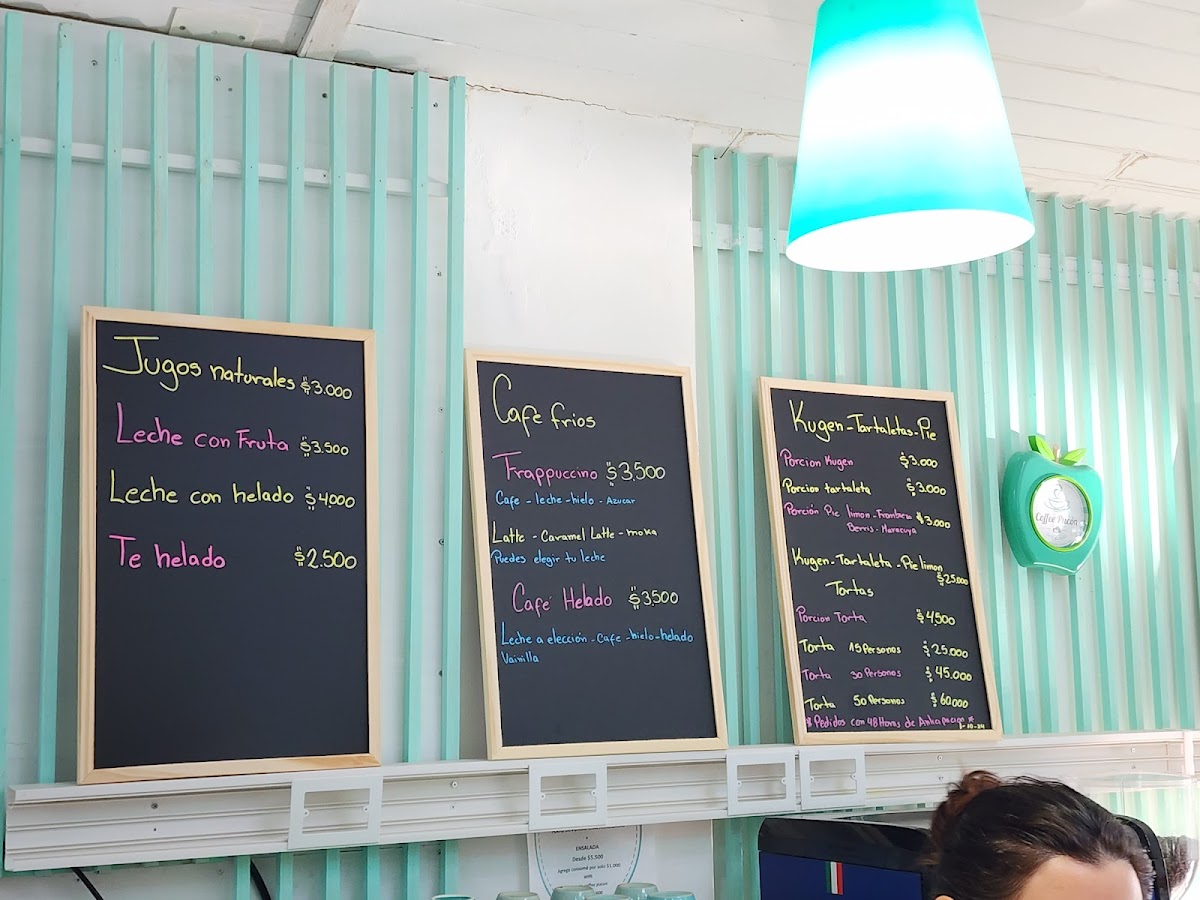 Jugos naturales $3.000
Leche con Fruta $3.500
Leche con helado $4.000
Te helado $2.500
Cafè frios
Frappuccino $3,500
Cafe - leche - hielo - Azucar
Latte - Caramel Latte - moka
Puedes elegir tu leche
Café Helado $3500
Leche a elección - Cafe - hielo - helado
Vainilla
Kugen - Tartaletas - Pie
Porcion Kugen $3.000
Porcion tartaleta $3.000
Porción Pie limon - Frambuesa
Berris - Maracuya $3.000
Kugen - Tartaleta - Pie limon
$25.000
Tortas
Porcion Torta $4,500
Torta 15 Personas $25.000
Torta 30 Personas $45.000
Torta 50 Personas $60.000
* Pedidos con 48 Horas de Anticipacion *
1-10-24
Coffee Pucón
ENSALADA
Desde $5.500
Agrega consomé por solo $1.000